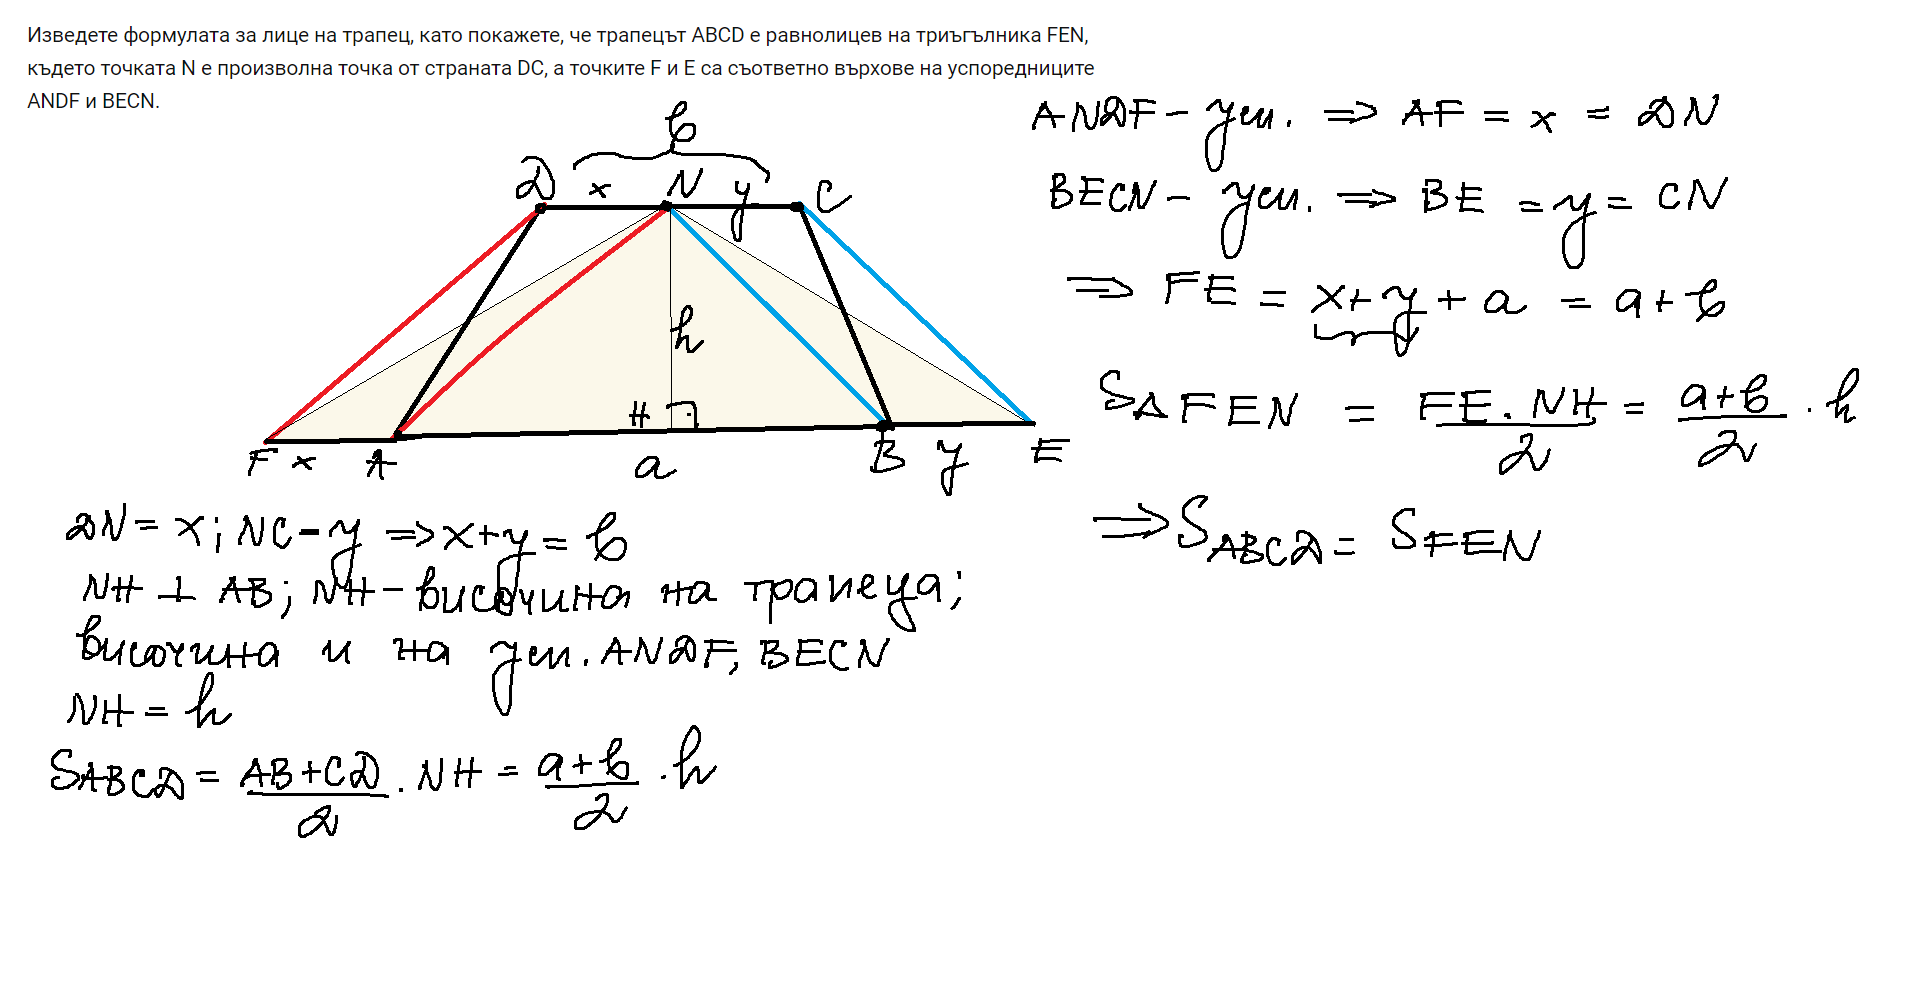 Изведете формулата за лице на трапец, като покажете, че трапецът ABCD е равнолицев на триъгълника FEN,
където точката N е произволна точка от страната DC, а точките F и E са съответно върхове на успоредниците
ANDF и BECN.
b
D x N y C
h
H
F x A a B y E
DN = x; NC - y => x+y = b
NH ⊥ AB; NH - височина на трапеца;
височина и на усп. ANDF, BECN
NH = h
S ABCD = AB+CD / 2 . NH = a+b / 2 . h
ANDF - усп. => AF = x = DN
BECN - усп. => BE = y = CN
=> FE = x+y + a = a+b
S ΔFEN = FE . NH / 2 = a+b / 2 . h
=> S ABCD = S FEN